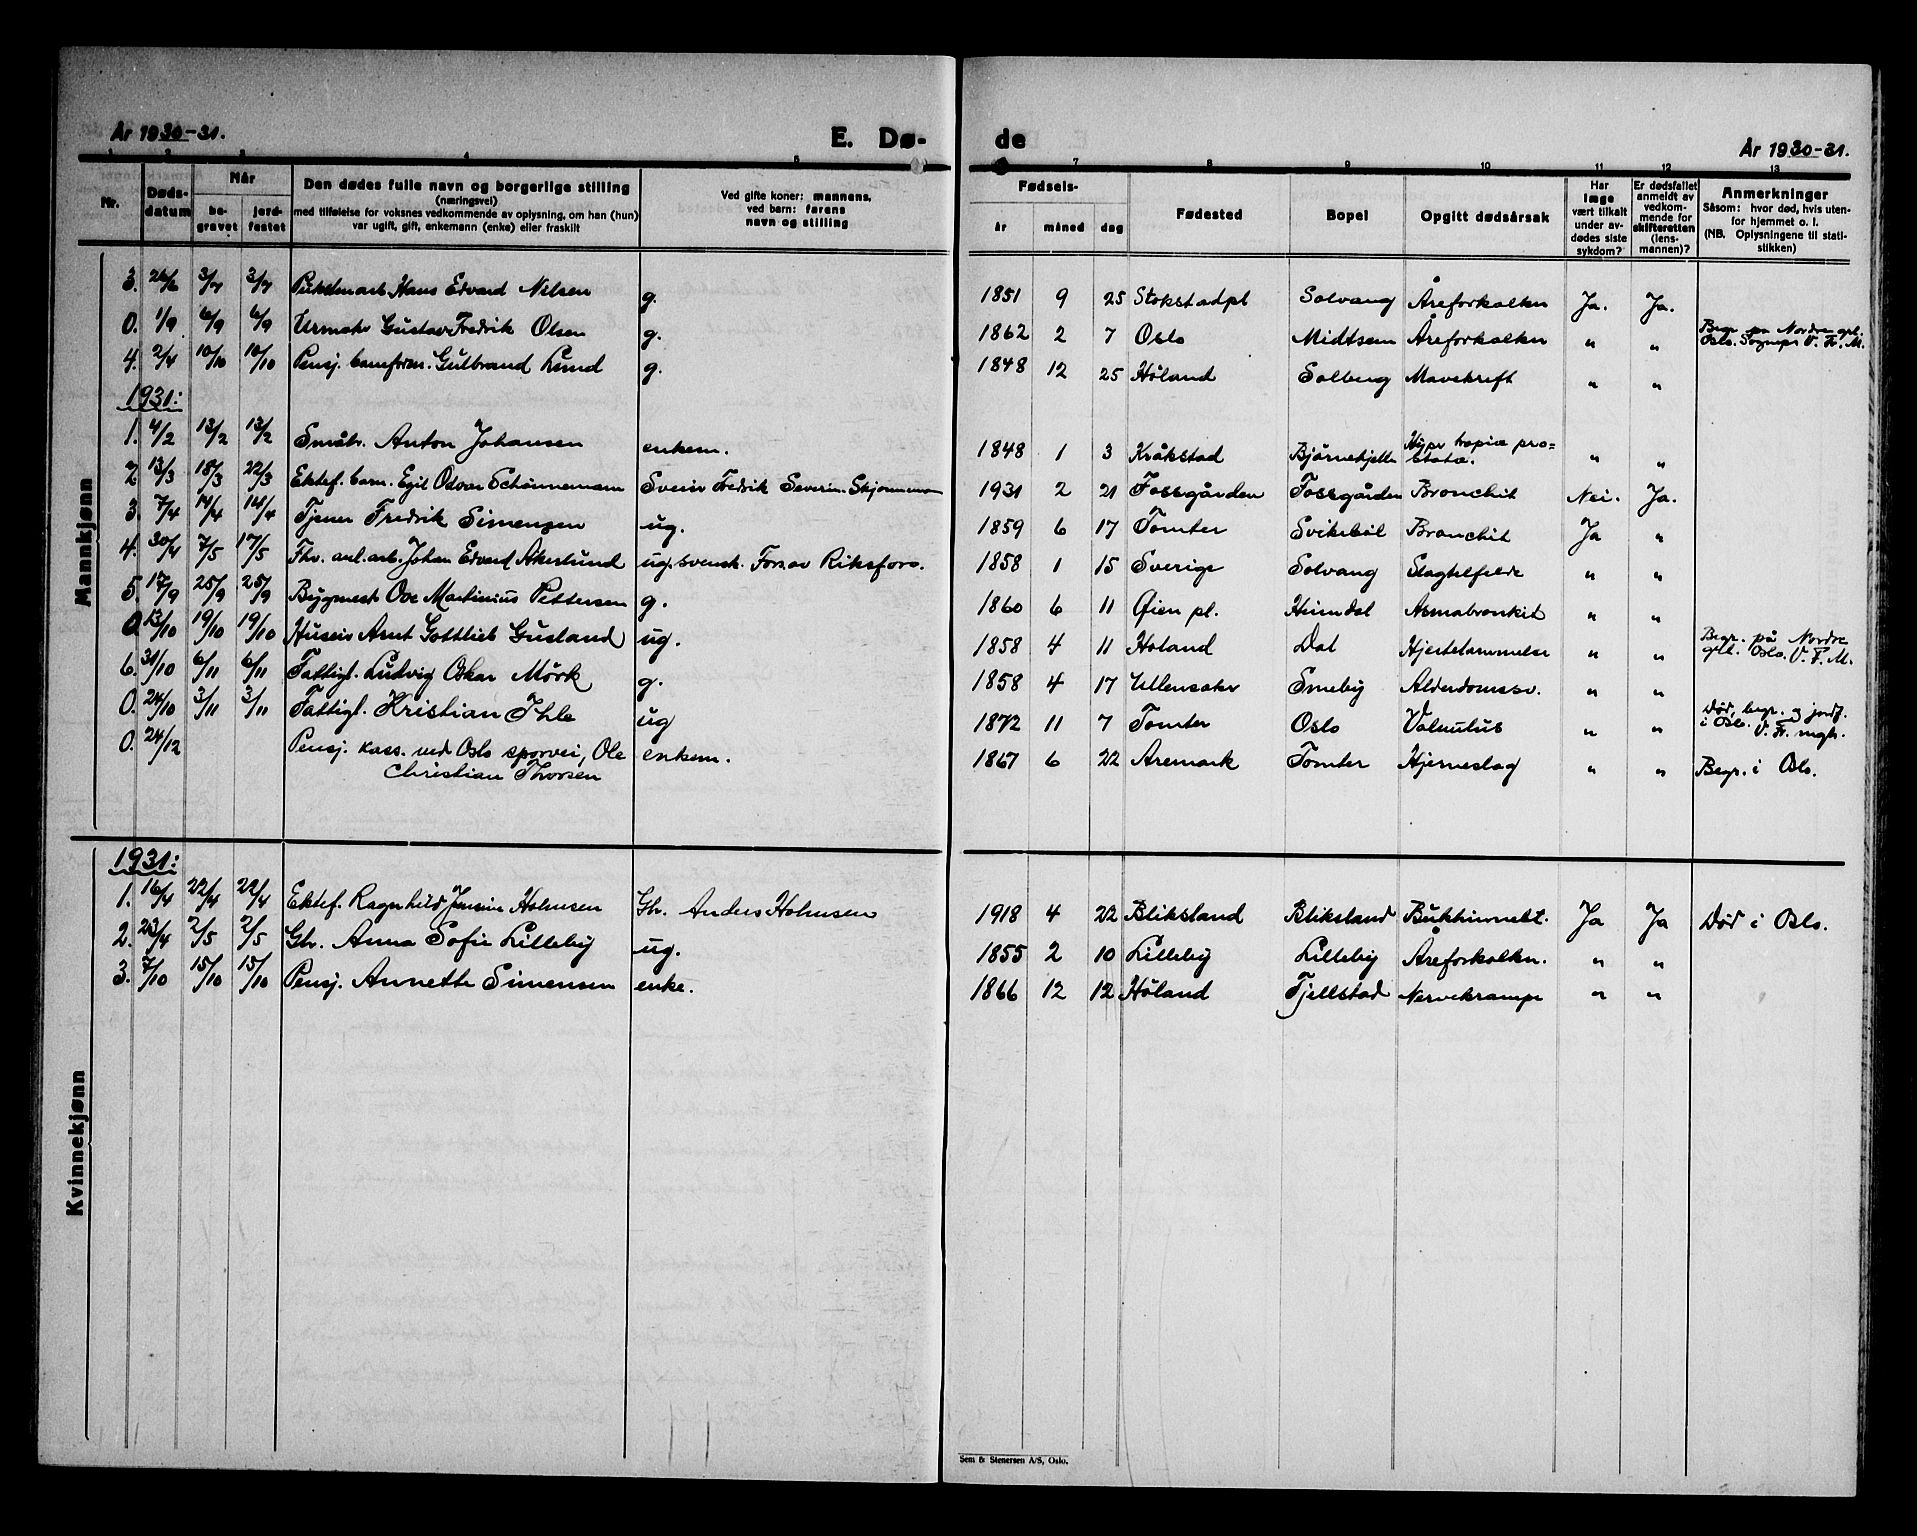 År 1930-31.
E. Dø-
de
År 1930-31.
1 2 3 4 5
7 8 9 10 11 12 13
Nr.
Døds-
datum
Når
be-
gravet
jord-
festet
Den dødes fulle navn og borgerlige stilling
(næringsvei)
med tilføielse for voksnes vedkommende av oplysning, om han (hun)
var ugift, gift, enkemann (enke) eller fraskilt
Ved gifte koner: mannens,
ved barn: farens
navn og stilling
Fødsels-
år måned dag
Fødested
Bopel
Opgitt dødsårsak
Har
læge
vært tilkalt
under av-
dødes siste
sykdom?
Er dødsfallet
anmeldt av
vedkom-
mende for
skifteretten
(lens-
mannen)?
Anmerkninger
Såsom: hvor død, hvis uten-
for hjemmet o. l.
(NB. Oplysningene til stati-
stikken)
Mannkjønn
3. 26/6 3/7 3/7 Hans Edvard Nilsen g. 1851 9 25 Stokstadpl Solvang Åreforkalkn Ja. Ja.
0. 1/9 6/9 6/9 Urmakr Gustav Fredrik Olsen g. 1862 2 7 Oslo Midtsem Åreforkalkn " " Begr. på Nordre gpl. Oslo. V. Fr. M.
4. 2/4 10/10 10/10 Pensj. Gulbrand Lund g. 1848 12 25 Høland Solberg Mavekreft " "
1931:
1. 4/2 13/2 13/2 Småbr. Anton Johansen enkem. 1848 1 3 Kråkstad Bjørnehjelle Hypertropia prostata. " "
2 13/3 18/3 22/3 Ektef. barn. Egil Odvar Schönnemann Svein Fredrik Severin Skjønneman 1931 2 21 Fossgården Fossgården Bronchit Nei. Ja.
3. 7/4 14/4 14/4 Tjener Fredrik Simensen ug. 1859 6 17 Tomter Svikebøl Bronchit Ja "
4. 30/4 7/5 17/5 Fhv. anl. arb. Johan Edvard Åkerlund ug. svensk. Forsøv Riksfors. 1858 1 15 Sverige Solvang Slagtilfelde " "
5. 17/9 25/9 25/9 Bygmest Ove Martinius Pettersen g. 1860 6 11 Øien pl. Heimdal Asmabronkit " "
0. 13/10 19/10 19/10 Huseier Arnt Gottlieb Gusland ug. 1858 4 11 Høland Dal Hjertelammelse " " Begr. på Nordre gpl. Oslo. V. F. M.
6. 31/10 6/11 6/11 Fattigl. Ludvig Oskar Mörk g. 1858 4 17 Ullensaker Smeby Alderdomssv. " "
0. 24/10 3/11 3/11 Fattigl. Kristian Ihle ug 1872 11 7 Tomter Oslo Volvulus " " Død, begr. og jordf. i Oslo. V. Fr. mgh.
0. 24/12 Pensj. kass. ved Oslo sporvei, Ole enkem. 1867 6 22 Aremark Tomter Hjerneslag " " Begr. i Oslo.
Christian Thorsen
Kvinnekjønn
1931:
1. 16/4 22/4 22/4 Ektef. Ragnhild Jensine Holmsen Gbr. Anders Holmsen 1918 4 22 Bliksland Bliksland Bukhinnebet. Ja Ja Død i Oslo.
2. 23/4 2/5 2/5 Gbr. Anna Sofie Lilleby ug. 1855 2 10 Lilleby Lilleby Åreforkalkn. " "
3. 7/10 15/10 15/10 Pensj. Annette Simensen enke. 1866 12 12 Høland Fjellstad Nervekrampe " "
Sem & Stenersen A/S, Oslo.